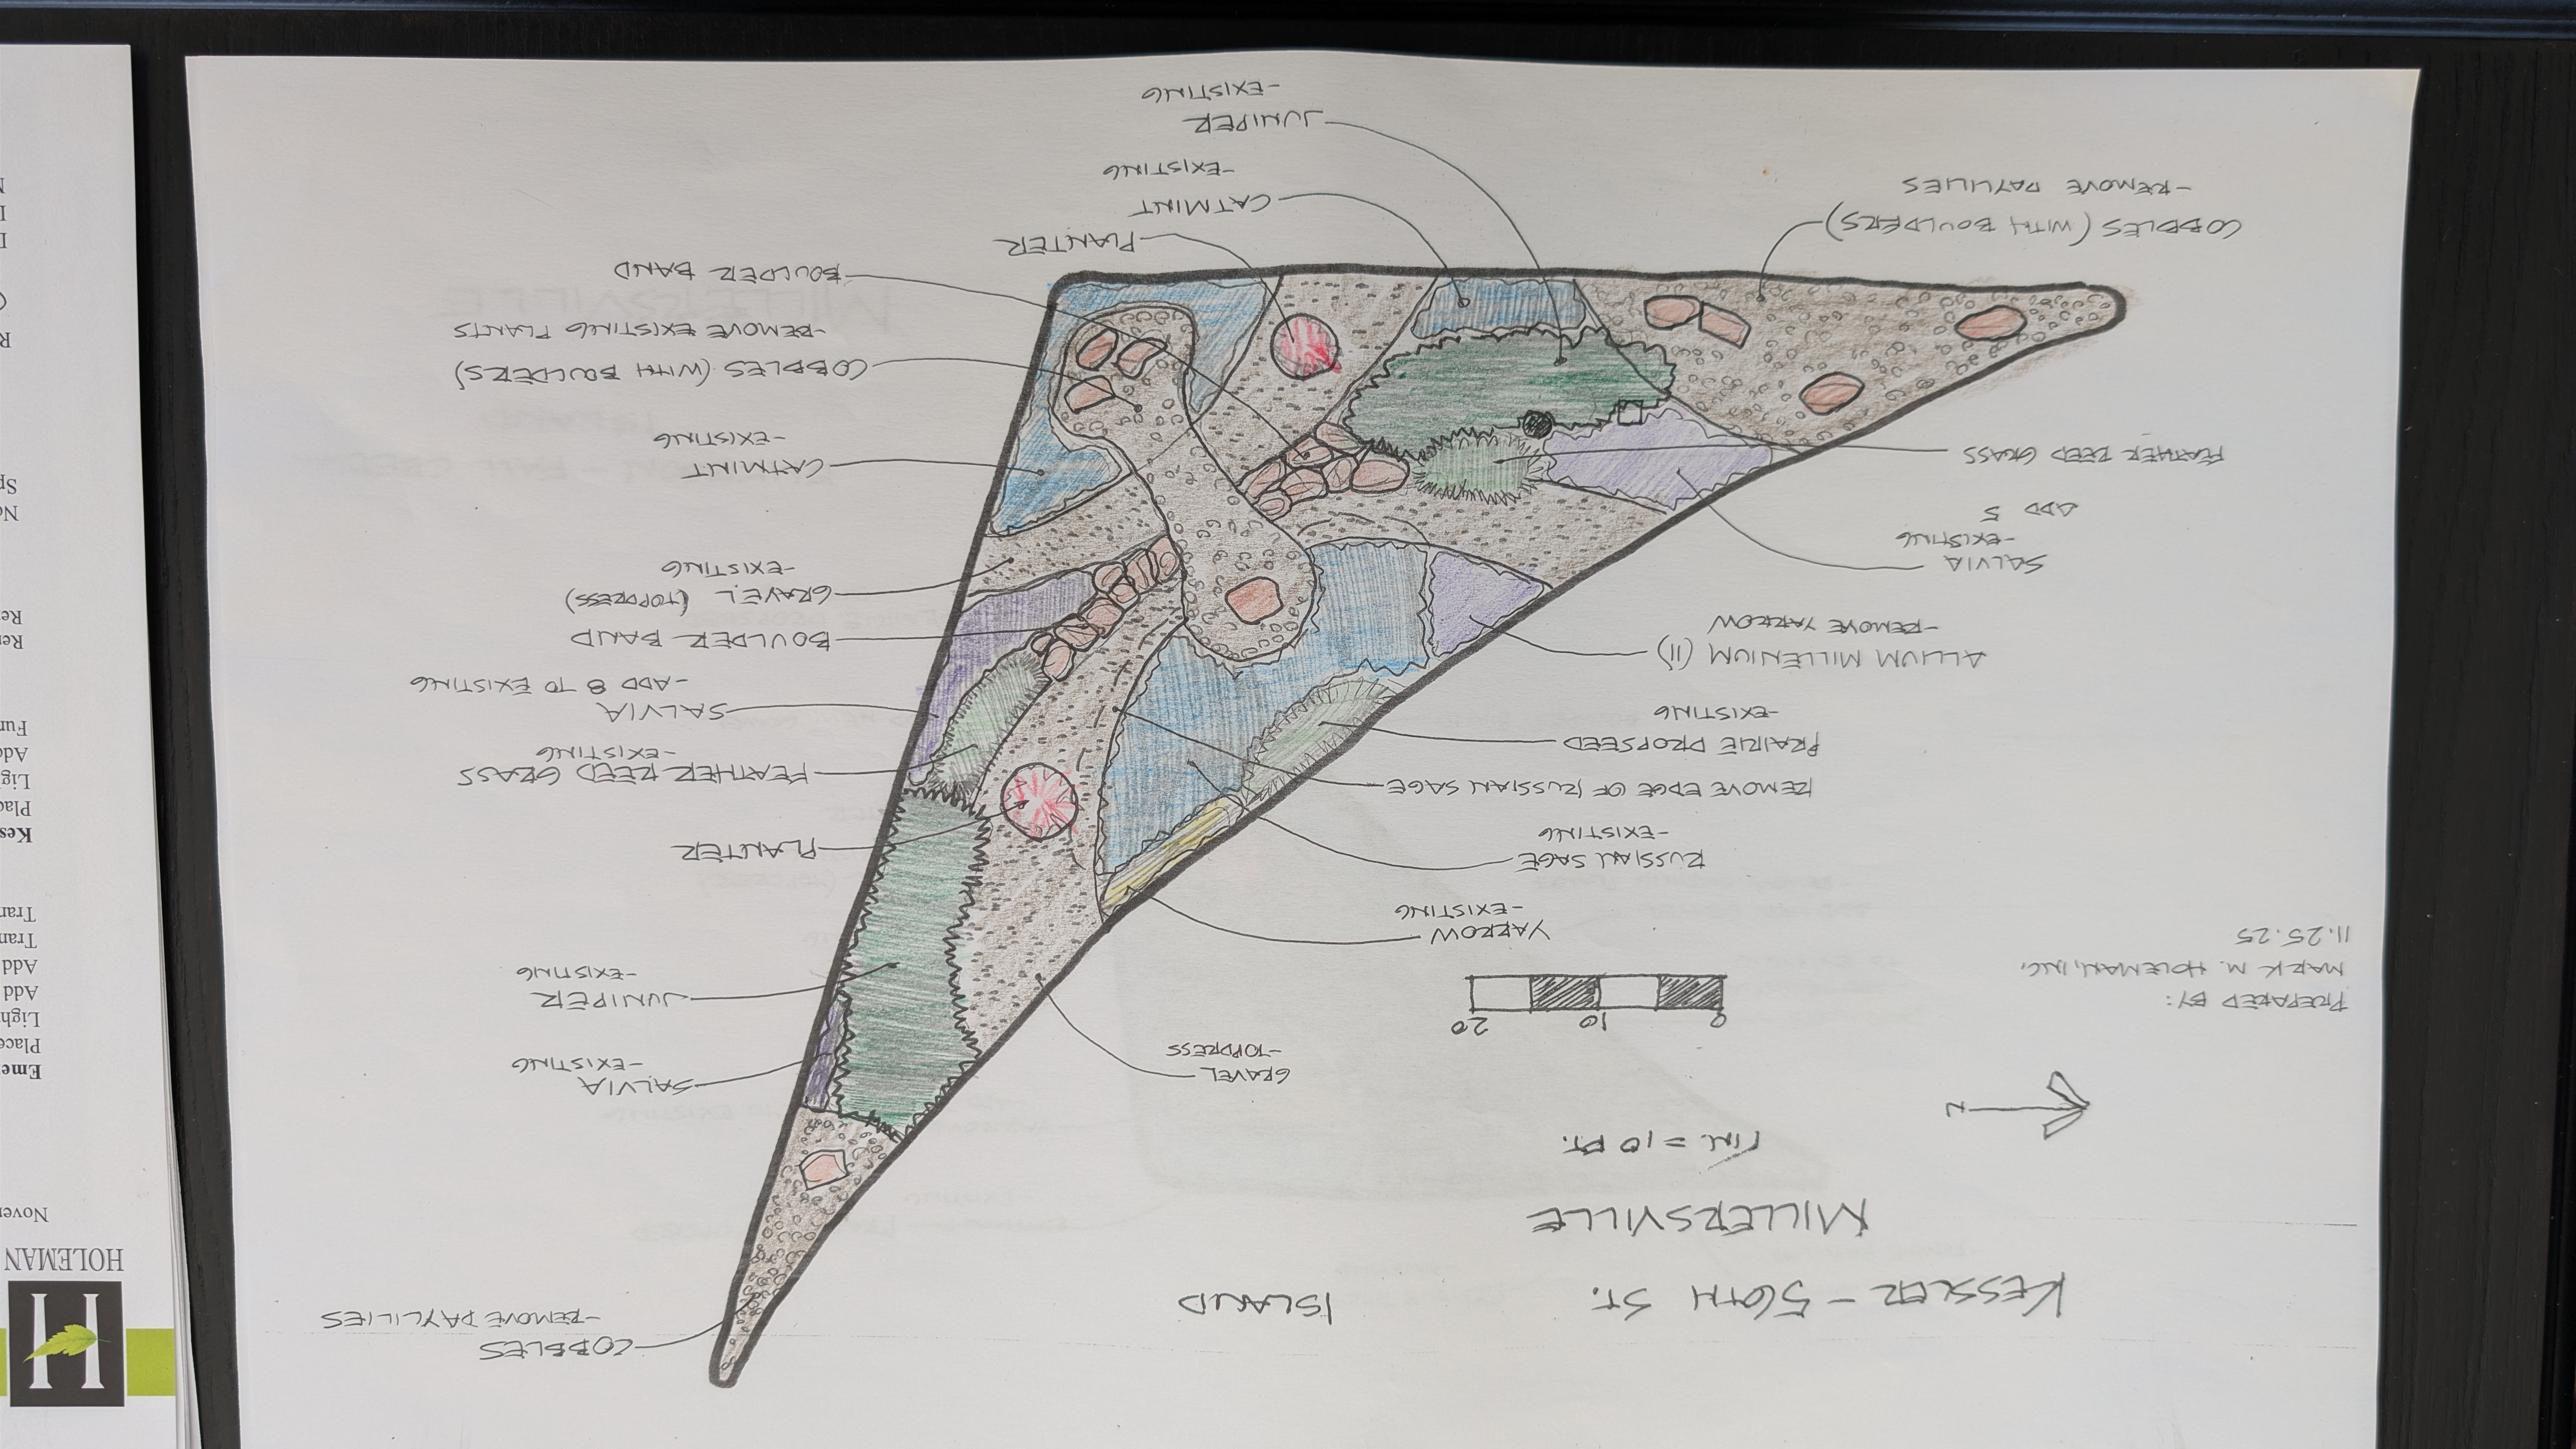 KESSLER - 56TH ST. ISLAND
MILLERSVILLE
1 IN. = 10 FT.
N
PREPARED BY:
MARK M. HOLEMAN, INC.
11.25.25
0 10 20
COBBLES
-REMOVE DAYLILIES
GRAVEL
-TOPDRESS
SALVIA
-EXISTING
JUNIPER
-EXISTING
YARROW
-EXISTING
RUSSIAN SAGE
-EXISTING
REMOVE EDGE OF RUSSIAN SAGE
PRAIRIE DROPSEED
-EXISTING
ALLIUM MILLENIUM (11)
-REMOVE YARROW
SALVIA
-EXISTING
ADD 5
FEATHER REED GRASS
COBBLES (WITH BOULDERS)
-REMOVE DAYLILIES
PLANTER
FEATHER REED GRASS
-EXISTING
SALVIA
-ADD 8 TO EXISTING
BOULDER BAND
GRAVEL (TOPDRESS)
-EXISTING
CATMINT
-EXISTING
COBBLES (WITH BOULDERS)
-REMOVE EXISTING PLANTS
BOULDER BAND
PLANTER
CATMINT
-EXISTING
JUNIPER
-EXISTING
H
HOLEMAN
Add
Add
Add